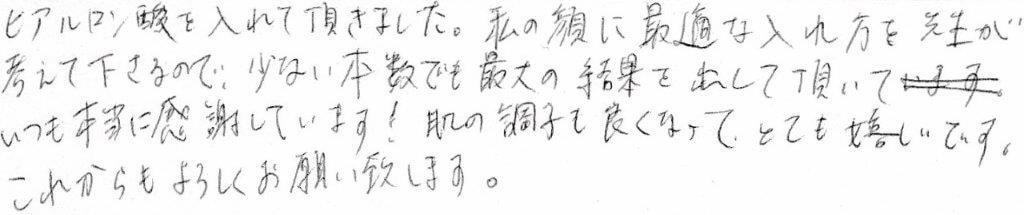 ヒアルロン酸を入れて頂きました。私の顔に最適な入れ方を先生が
考えて下さるので、少ない本数でも最大の結果を出して頂いて
いつも本当に感謝しています！肌の調子も良くなって、とても嬉しいです。
これからもよろしくお願い致します。